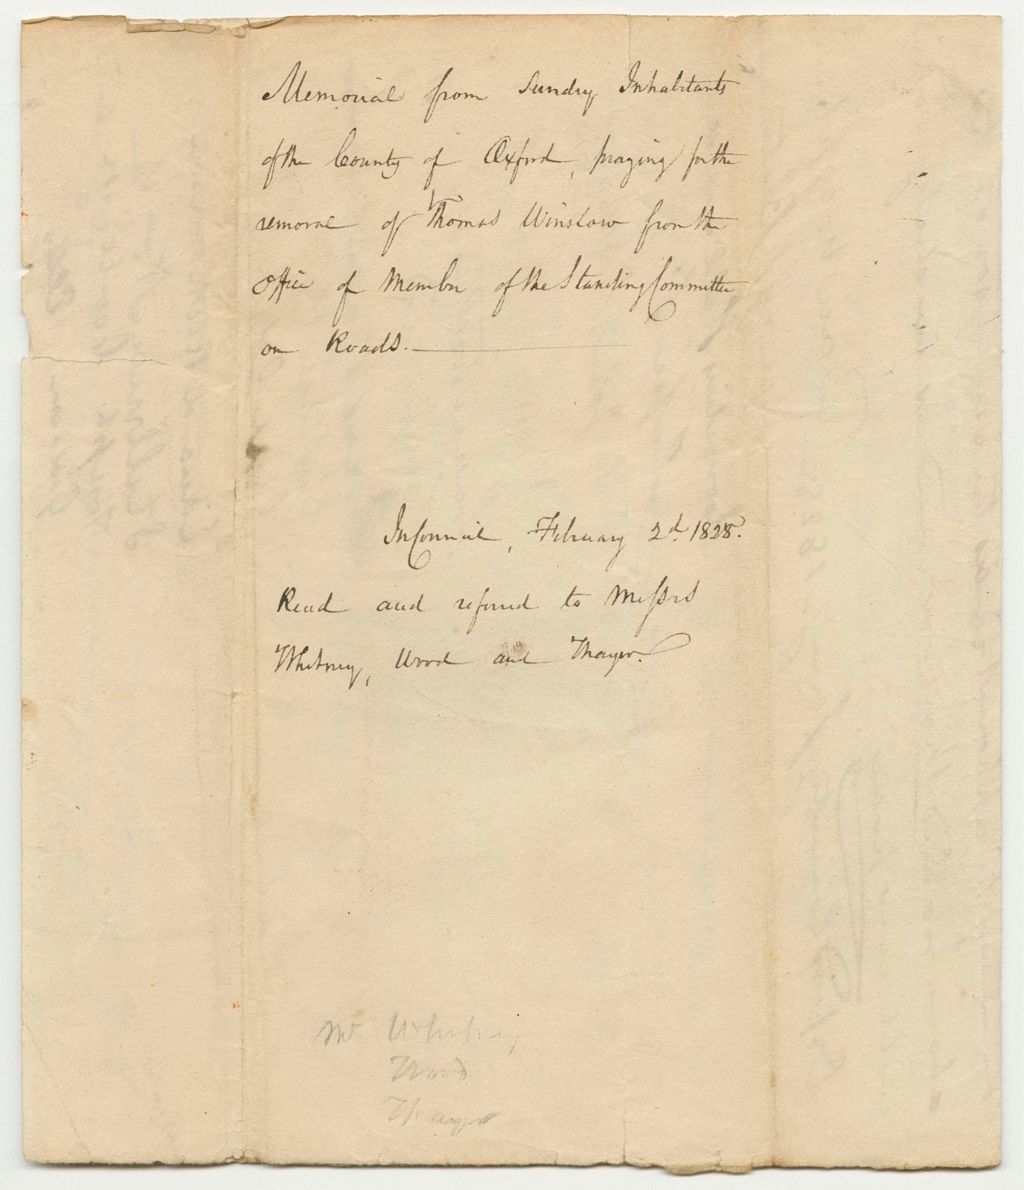 Memorial from Sundry Inhabitants
of the County of Oxford, praying for the
removal of Thomas Winslow from the
Office of Member of the Standing Committee
on Roads.
In Council, February 2d. 1828.
Read and referred to Messrs
Whitney, Wood and Thayer.
Mr Whitney
Wood
Thayer